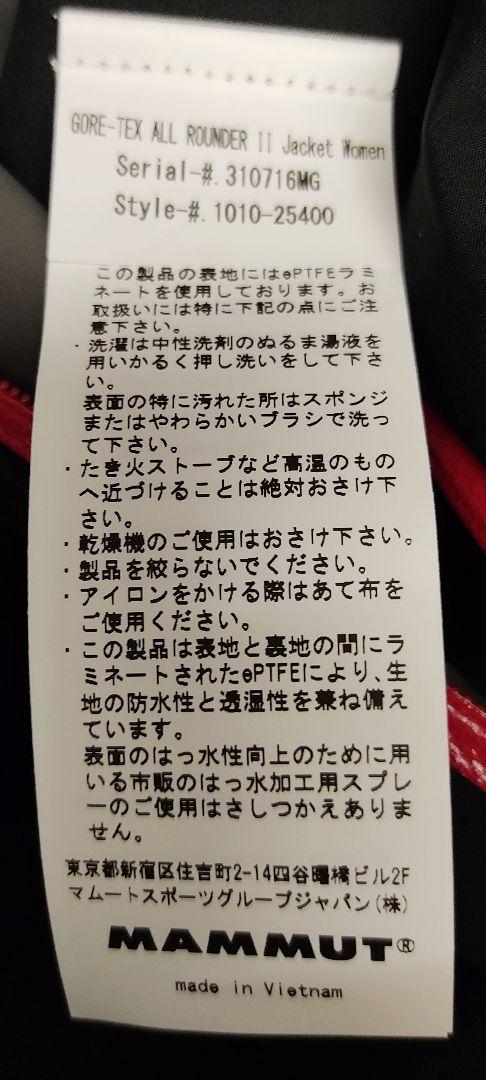 GORE-TEX ALL ROUNDER II Jacket Women
Serial-#.310716MG
Style-#.1010-25400
この製品の表地にはePTFEラミ
ネートを使用しております。お
取扱いには特に下記の点にご注
意下さい。
・洗濯は中性洗剤のぬるま湯液を
用いかるく押し洗いをして下さ
い。
表面の特に汚れた所はスポンジ
またはやわらかいブラシで洗っ
て下さい。
・たき火ストーブなど高温のもの
へ近づけることは絶対おさけ下
さい。
・乾燥機のご使用はおさけ下さい。
・製品を絞らないでください。
・アイロンをかける際はあて布を
ご使用ください。
・この製品は表地と裏地の間にラ
ミネートされたePTFEにより、生
地の防水性と透湿性を兼ね備え
ています。
表面のはっ水性向上のために用
いる市販のはっ水加工用スプレ
ーのご使用はさしつかえありま
せん。
東京都新宿区住吉町2-14四谷曙橋ビル2F
マムートスポーツグループジャパン(株)
MAMMUT®
made in Vietnam